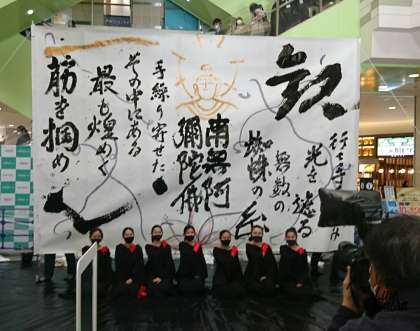 行く手
光を遮る
無数の
蜘蛛の糸
南無阿
彌陀佛
手繰り寄せた
その中にある
最も煌めく
筋を掴め